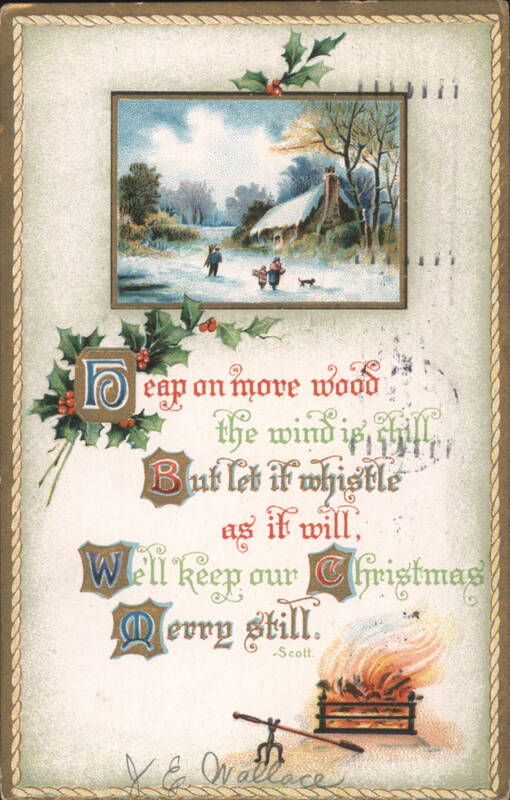 Heap on more wood
the wind is chill
But let it whistle
as it will,
We'll keep our Christmas
Merry still.
-Scott.
E. Wallace